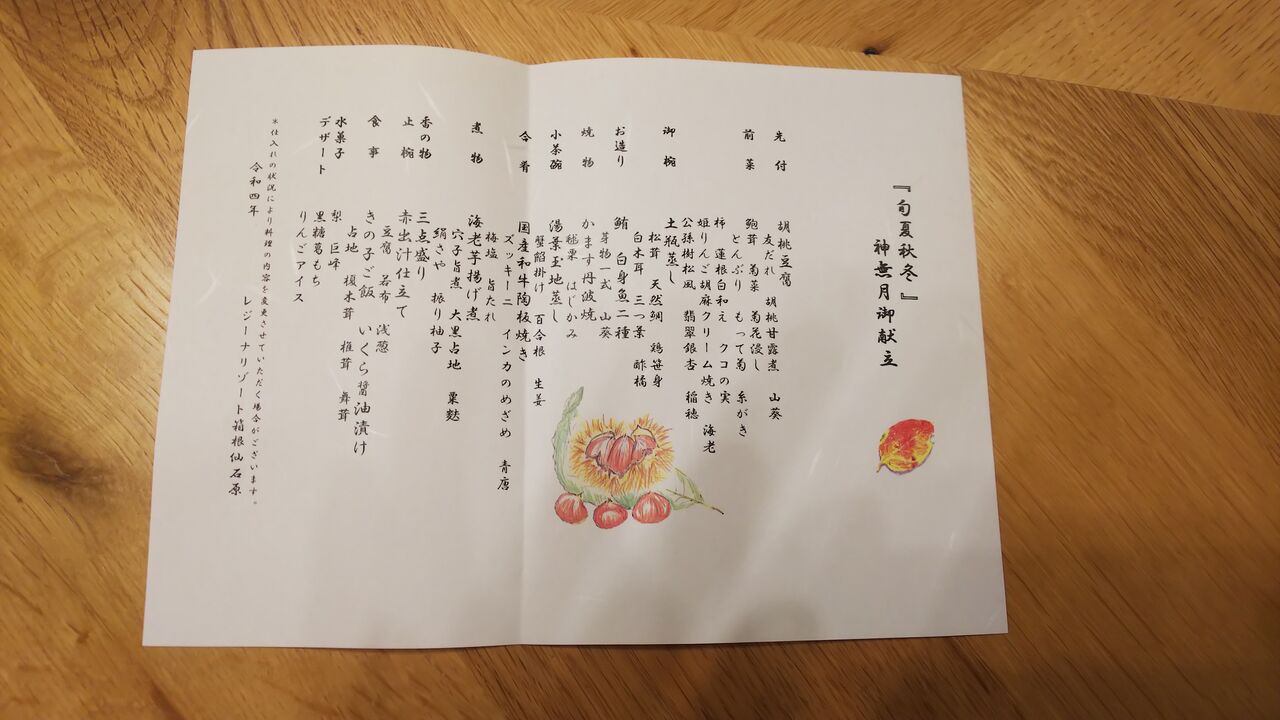 『旬夏秋冬』
神無月御献立
先付
胡桃豆腐
友だれ 胡桃甘露煮 山葵
前菜
鮑茸 菊菜 菊花浸し
どんぶり もって菊 糸がき
柿 蓮根白和え クコの実
姫りんご胡麻クリーム焼き 海老
公孫樹松風 翡翠銀杏 稲穂
御椀
土瓶蒸し
松茸 天然鯛 鶏笹身
白木耳 三つ葉 酢橘
お造り
鮪 白身魚二種
芽物一式 山葵
焼物
かます丹波焼
毬栗 はじかみ
小茶碗
湯葉玉地蒸し
蟹餡掛け 百合根 生姜
合肴
国産和牛陶板焼き
ズッキーニ インカのめざめ 青唐
梅塩 旨たれ
煮物
海老芋揚げ煮
穴子旨煮 大黒占地 粟麩
絹さや 振り柚子
香の物
三点盛り
止椀
赤出汁仕立て
豆腐 若布 浅葱
食事
きの子ご飯 いくら醤油漬け
占地 榎木茸 椎茸 舞茸
水菓子
梨 巨峰
デザート
黒糖葛もち
りんごアイス
※仕入れの状況により料理の内容を変更させていただく場合がございます。
令和四年 レジーナリゾート箱根仙石原